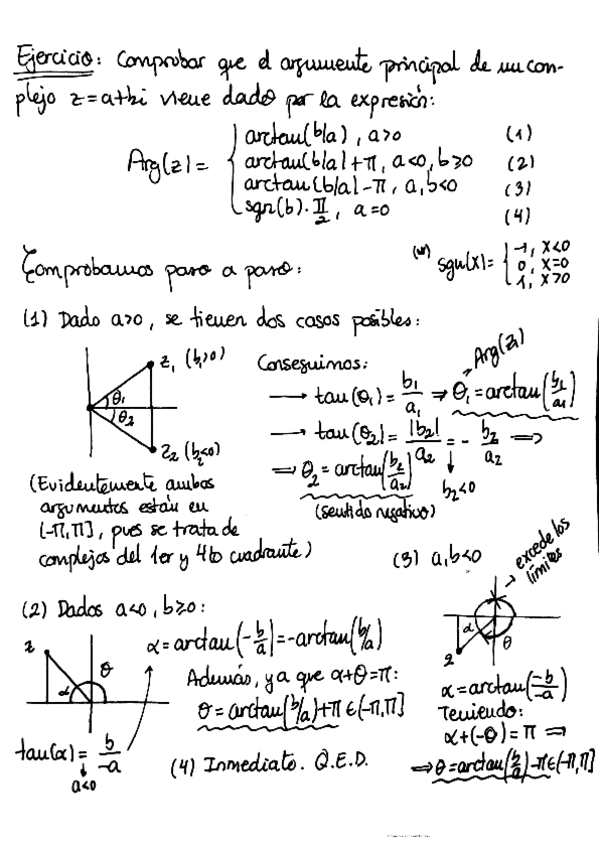 Ejercicio: Comprobar que el argumente principal de un com-
plejo z=a+bi viene dado por la expresión:
Arg(z)= { arctan(b/a), a>0 (1)
arctan(b/a)+π, a<0, b≥0 (2)
arctan(b/a)-π, a,b<0 (3)
sgn(b)·π/2, a=0 (4)
Comprobamos paso a paso:
sgn(x)= { -1, x<0
0, x=0
1, x>0
(1) Dado a>0, se tienen dos casos posibles:
z₁ (b₁>0)
θ₁
θ₂
z₂ (b₂<0)
Conseguimos:
Arg(z₁)
→ tan(θ₁) = b₁/a₁ ⇒ θ₁ = arctan(b₁/a₁)
→ tan(θ₂) = |b₂|/a₂ = - b₂/a₂ ⇒
b₂<0
⇒ θ₂ = arctan(b₂/a₂)
(sentido negativo)
(Evidentemente ambos
argumentos están en
(-π,π], pues se trata de
complejos del 1er y 4to cuadrante)
(2) Dados a<0, b≥0:
z
α
θ
tan(α) = b/-a
a<0
α = arctan(-b/a) = -arctan(b/a)
Además, ya que α+θ=π:
θ = arctan(b/a)+π ∈ (-π,π]
(3) a,b<0
→ excede los
límites
α
θ
z
α = arctan(-b/-a)
Teniendo:
α+(-θ) = π ⇒
⇒ θ = arctan(b/a)-π ∈ (-π,π]
(4) Inmediato. Q.E.D.